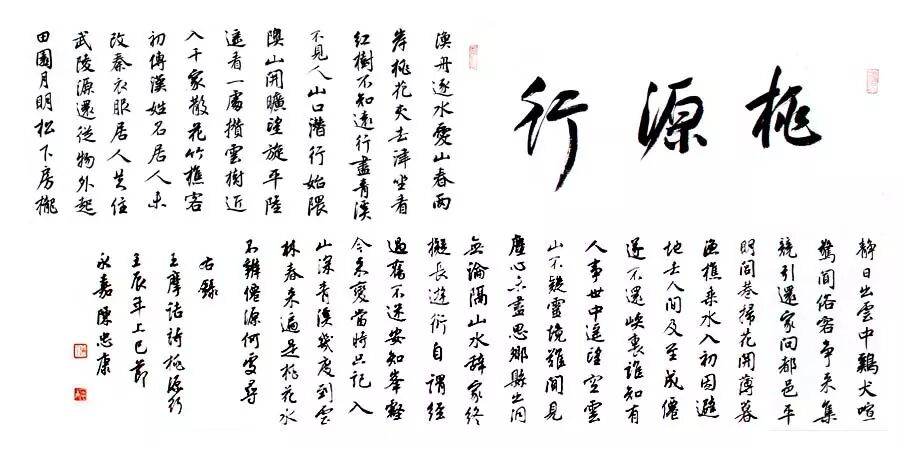 桃源行
漁舟逐水愛山春兩
岸桃花夾去津坐看
紅樹不知遠行盡青溪
不見人山口潛行始隈
隩山開曠望旋平陸
遥看一處攢雲樹近
入千家散花竹樵客
初傳漢姓名居人未
改秦衣服居人共住
武陵源還從物外起
田園月明松下房櫳
静日出雲中雞犬喧
驚聞俗客爭来集
競引還家問都邑平
明閭巷掃花開薄暮
漁樵乘水入初因避
地去人間及至成僊
遂不還峽裏誰知有
人事世中遥望空雲
山不疑靈境難聞見
塵心未盡思鄉縣出洞
無論隔山水辭家終
擬長遊衍自謂經
過舊不迷安知峯壑
今来變當時只記入
山深青溪幾度到雲
林春来遍是桃花水
不辨僊源何處尋
右錄
王摩詰詩桃源行
壬辰年上巳節
永嘉陳忠康